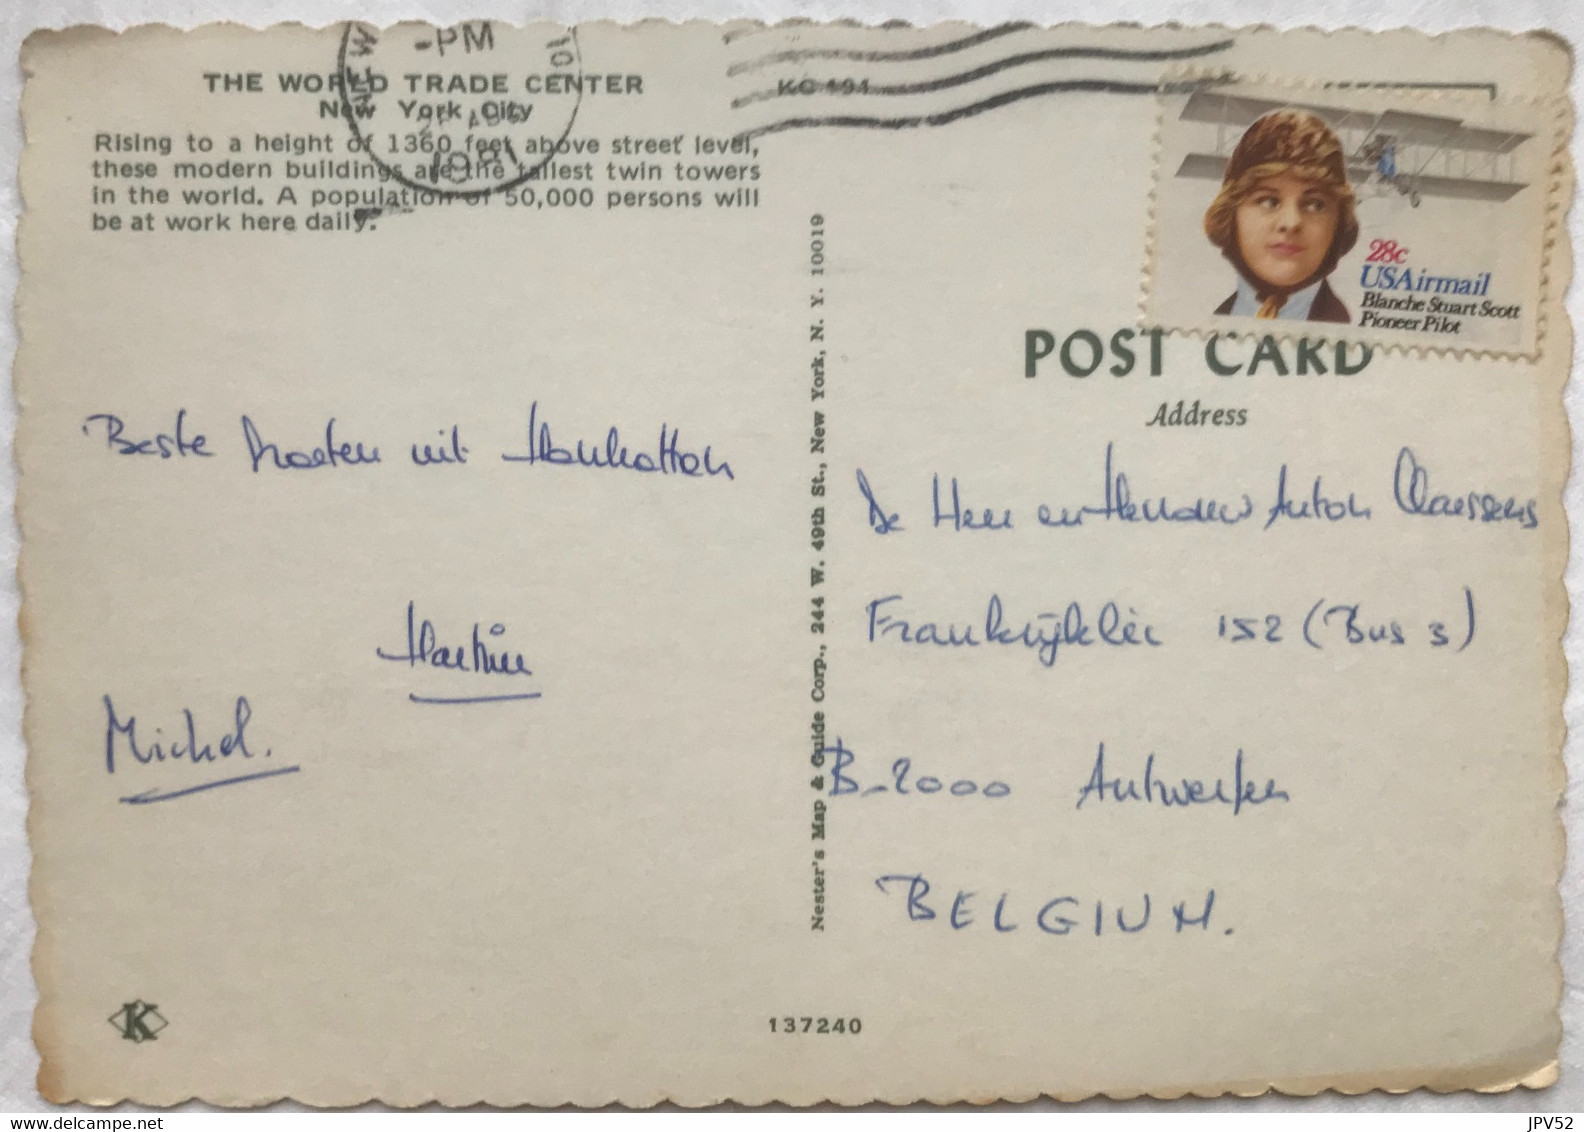 NEW
-PM
10
1981
THE WORLD TRADE CENTER
New York City
Rising to a height of 1360 feet above street level,
these modern buildings are the tallest twin towers
in the world. A population of 50,000 persons will
be at work here daily.
KC 191
28c
USAirmail
Blanche Stuart Scott
Pioneer Pilot
POST CARD
Address
Beste Groeten uit Manhattan
Martine
Michel.
Nester's Map & Guide Corp., 244 W. 49th St., New York, N. Y. 10019
De Heer en Mevrouw Anton Claessens
Frankrijklei 152 (Bus 3)
B-2000 Antwerpen
BELGIUM.
K
137240
delcampe.net
JPV52